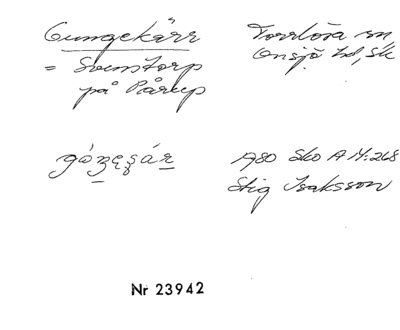 Gungekärr
= Svenstorp
på Pårup
Torrlösa sn,
Onsjö hd, Sk
1980 Sko A 14:268
Stig Isaksson
Nr 23942